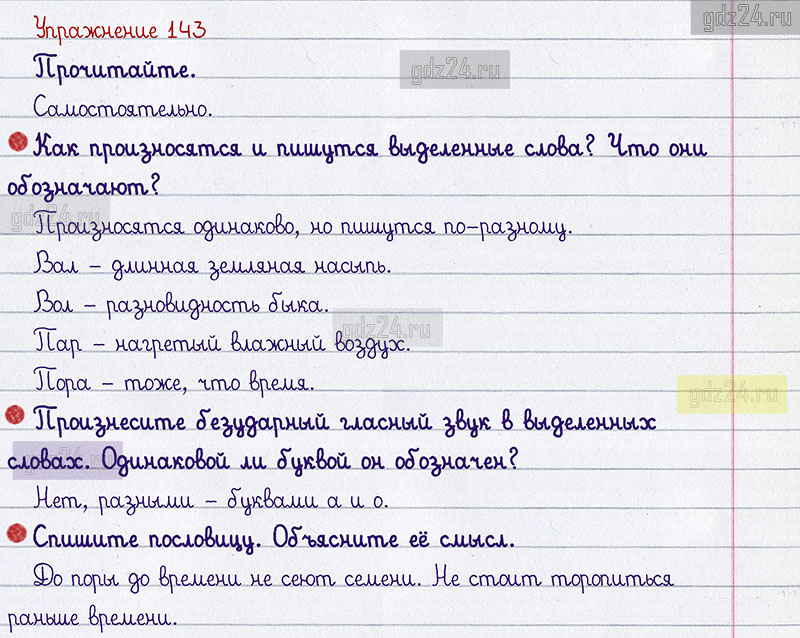 gdz24.ru
Упражнение 143
Прочитайте.
gdz24.ru
Самостоятельно.
Как произносятся и пишутся выделенные слова? Что они
обозначают?
gdz24.ru
Произносятся одинаково, но пишутся по-разному.
Вал – длинная земляная насыпь.
Вол – разновидность быка.
gdz24.ru
Пар – нагретый влажный воздух.
Пора – тоже, что время.
gdz24.ru
Произнесите безударный гласный звук в выделенных
словах. Одинаковой ли буквой он обозначен?
Нет, разными – буквами а и о.
Спишите пословицу. Объясните её смысл.
До поры до времени не сеют семени. Не стоит торопиться
раньше времени.